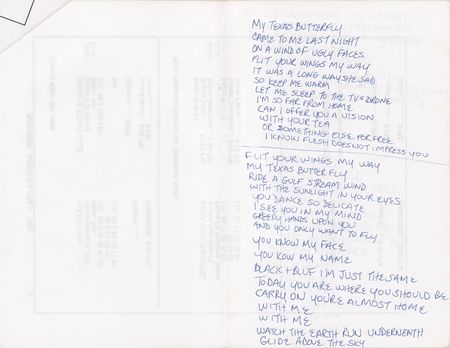 MY TEXAS BUTTERFLY
CAME TO ME LAST NIGHT
ON A WIND OF UGLY FACES
FLIT YOUR WINGS MY WAY
IT WAS A LONG WAY SHE SAD
SO KEEP ME WARM
LET ME SLEEP TO THE TV'S DRONE
I'M SO FAR FROM HOME
CAN I OFFER YOU A VISION
WITH YOUR TEA
OR SOMETHING ELSE FOR FREE
I KNOW FLESH DOES NOT IMPRESS YOU
FLIT YOUR WINGS MY WAY
MY TEXAS BUTTERFLY
RIDE A GULF STREAM WIND
WITH THE SUNLIGHT IN YOUR EYES
YOU DANCE SO DELICATE
I SEE YOU IN MY MIND
GREEDY HANDS UPON YOU
AND YOU ONLY WANT TO FLY
YOU KNOW MY FACE
YOU KOW MY NAME
BLACK + BLUE I'M JUST THE SAME
TODAY YOU ARE WHERE YOU SHOULD BE
CARRY ON YOU'RE ALMOST HOME
WITH ME
WITH ME
WATCH THE EARTH RUN UNDERNEATH
GLIDE ABOVE THE SKY